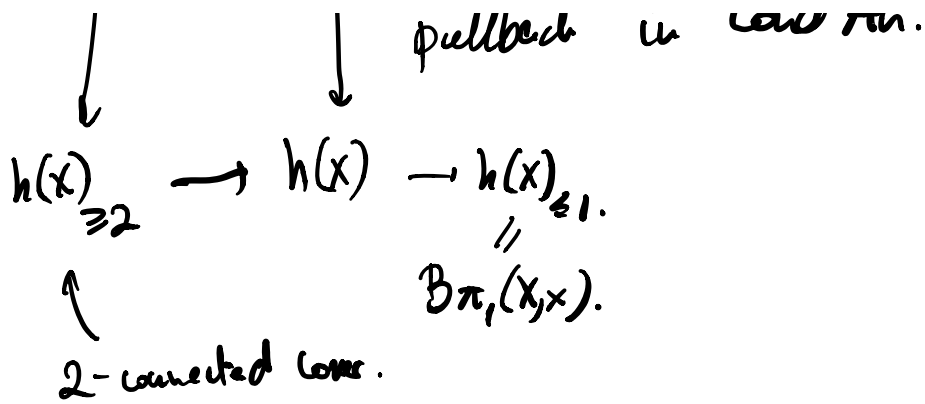 pullback in
h(X)≥2 → h(X) → h(X)≤1.
=
Bπ₁(X,x).
2-connected cover.